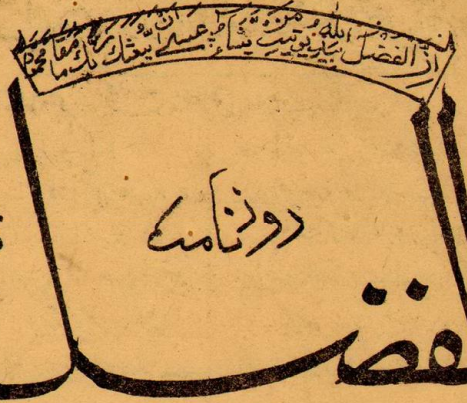 ان الفضل بيد الله يؤتيه من يشاء عسى ان يبعثك ربك مقاما محمودا
روزنامہ
الفضل